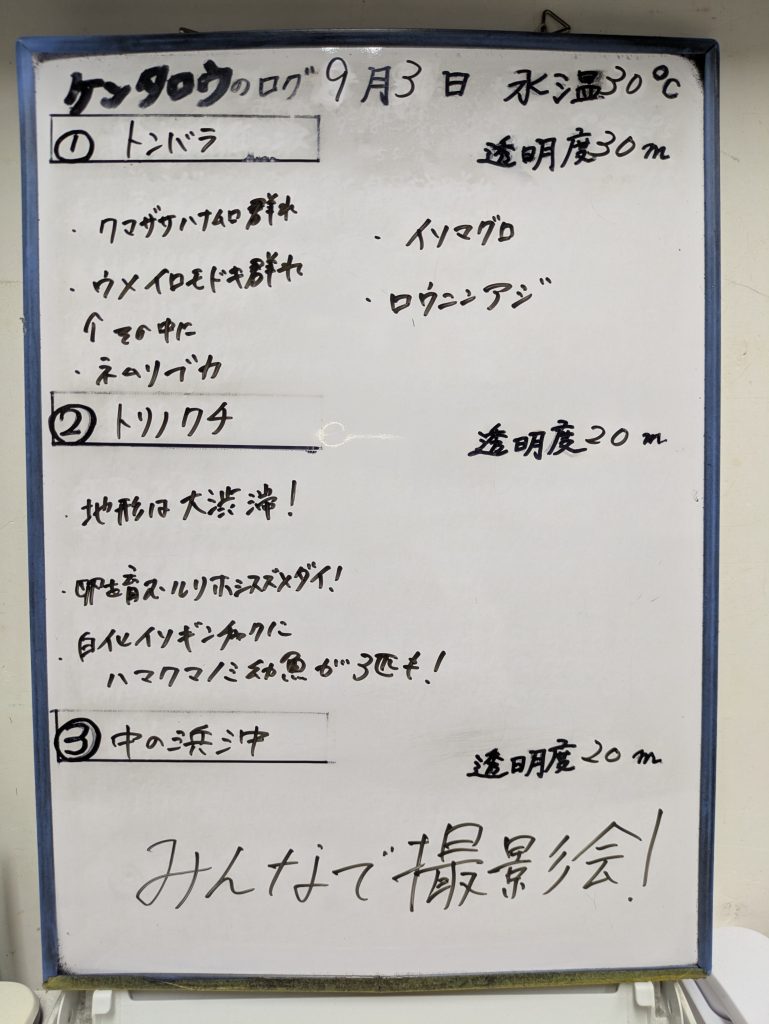 ケンタロウのログ 9月3日 水温30℃
① トンバラ
透明度30m
・クマザサハナムロ群れ
・ウメイロモドキ群れ
↑その中に
・ネムリブカ
・イソマグロ
・ロウニンアジ
② トリノクチ
透明度20m
・地形は大渋滞!
・卵を育ルリホシスズメダイ!
・白化イソギンチャクに
ハマクマノミ幼魚が3匹も!
③ 中の浜沖
透明度20m
みんなで撮影会!